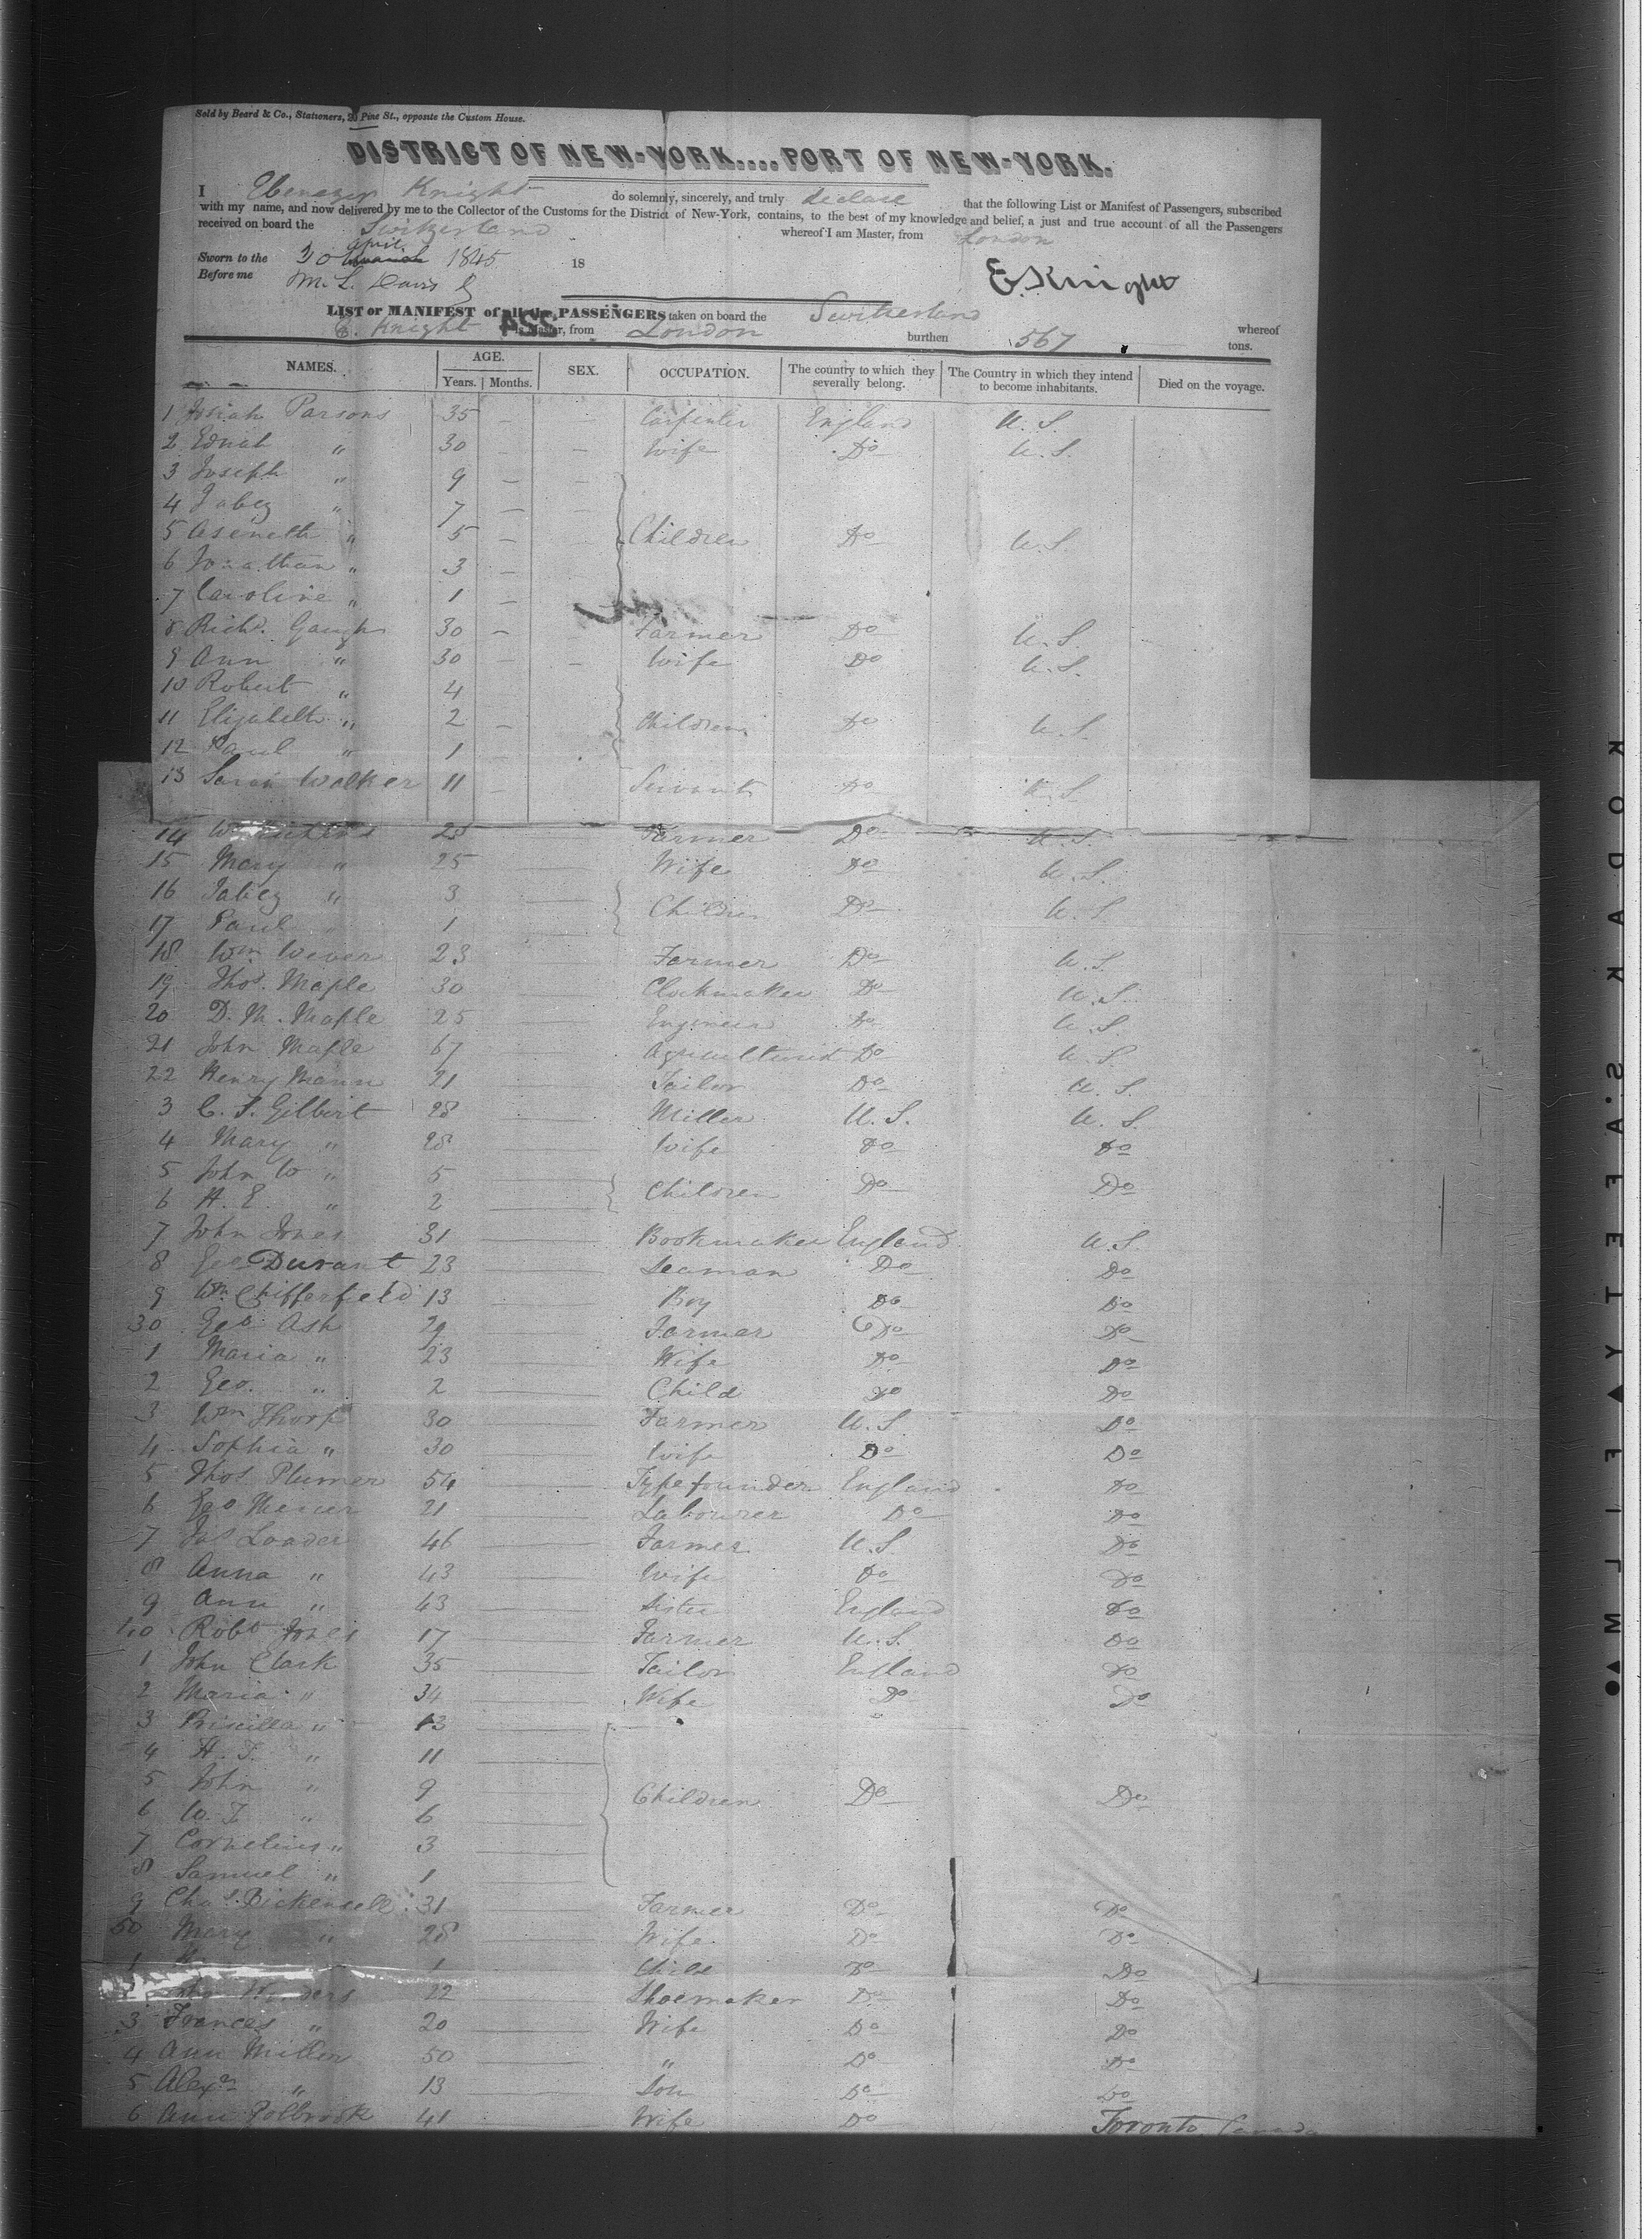 Sold by Beard & Co., Stationers, 20 Pine St., opposite the Custom House.
DISTRICT OF NEW-YORK....PORT OF NEW-YORK.
I Ebenezer Knight do solemnly, sincerely, and truly declare that the following List or Manifest of Passengers, subscribed
with my name, and now delivered by me to the Collector of the Customs for the District of New-York, contains, to the best of my knowledge and belief, a just and true account of all the Passengers
received on board the Switzerland whereof I am Master, from London
Sworn to the 30 April 1845 18
Before me M. L. Davis E. Knight
LIST or MANIFEST of all the PASSENGERS taken on board the Switzerland whereof
E. Knight is Master, from London burthen 567 tons.
NAMES. AGE. Years. Months. SEX. OCCUPATION. The country to which they severally belong. The Country in which they intend to become inhabitants. Died on the voyage.
1 Josiah Parsons 35 - - Carpenter England U.S.
2 Ednah " 30 - - Wife Do U.S.
3 Joseph " 9 - -
4 Jabez " 7 - -
5 Aseneth " 5 - - Children Do U.S.
6 Jonathan " 3 -
7 Caroline " 1 -
8 Richd. Gough 30 - - Farmer Do U.S.
9 Ann " 30 - - Wife Do U.S.
10 Robert " 4
11 Elizabeth " 2 - Children Do U.S.
12 Paul " 1 -
13 Sarah Walker 11 - Servant Do U.S.
14 Wm 25 Farmer Do U.S.
15 Mary " 25 Wife Do U.S.
16 Jabez " 3 Children Do U.S.
17 Paul " 1
18 Wm Wever 23 Farmer Do U.S.
19 Thos. Maple 30 Clockmaker Do U.S.
20 D. M. Maple 25 Engineer Do U.S.
21 John Maple 67 Agriculturist Do U.S.
22 Henry Mann 21 Tailor Do U.S.
3 C. S. Gilbert 28 Miller U.S. U.S.
4 Mary " 28 Wife Do Do
5 John W " 5 Children Do Do
6 H. E. " 2
7 John Jones 31 Bookmaker England U.S.
8 Geo Durant 23 Seaman Do Do
9 Wm Chifferfield 13 Boy Do Do
30 Geo Ash 29 Farmer Do Do
1 Maria " 23 Wife Do Do
2 Geo. " 2 Child Do Do
3 Wm Thorp 30 Farmer U.S. Do
4 Sophia " 30 Wife Do Do
5 Thos Plumer 54 Typefounder England Do
6 Geo Mercer 21 Labourer Do Do
7 Jas Loader 46 Farmer U.S. Do
8 Anna " 43 Wife Do Do
9 Ann " 43 Sister England Do
40 Robt Jones 17 Farmer U.S. Do
1 John Clark 35 Tailor England Do
2 Maria " 34 Wife Do Do
3 Priscilla " 13
4 H. T. " 11
5 John " 9 Children Do Do
6 W. T. " 6
7 Cornelius " 3
8 Samuel " 1
9 Chas. Bickensell 31 Farmer Do Do
50 Mary " 28 Wife Do Do
1 1 Child Do Do
John Winders 22 Shoemaker Do Do
3 Frances " 20 Wife Do Do
4 Ann Miller 50 " Do Do
5 Alexr " 13 Son Do Do
6 Ann Holbrook 41 Wife Do Toronto Canada
KODAK S.A.F.E.T.Y FILM